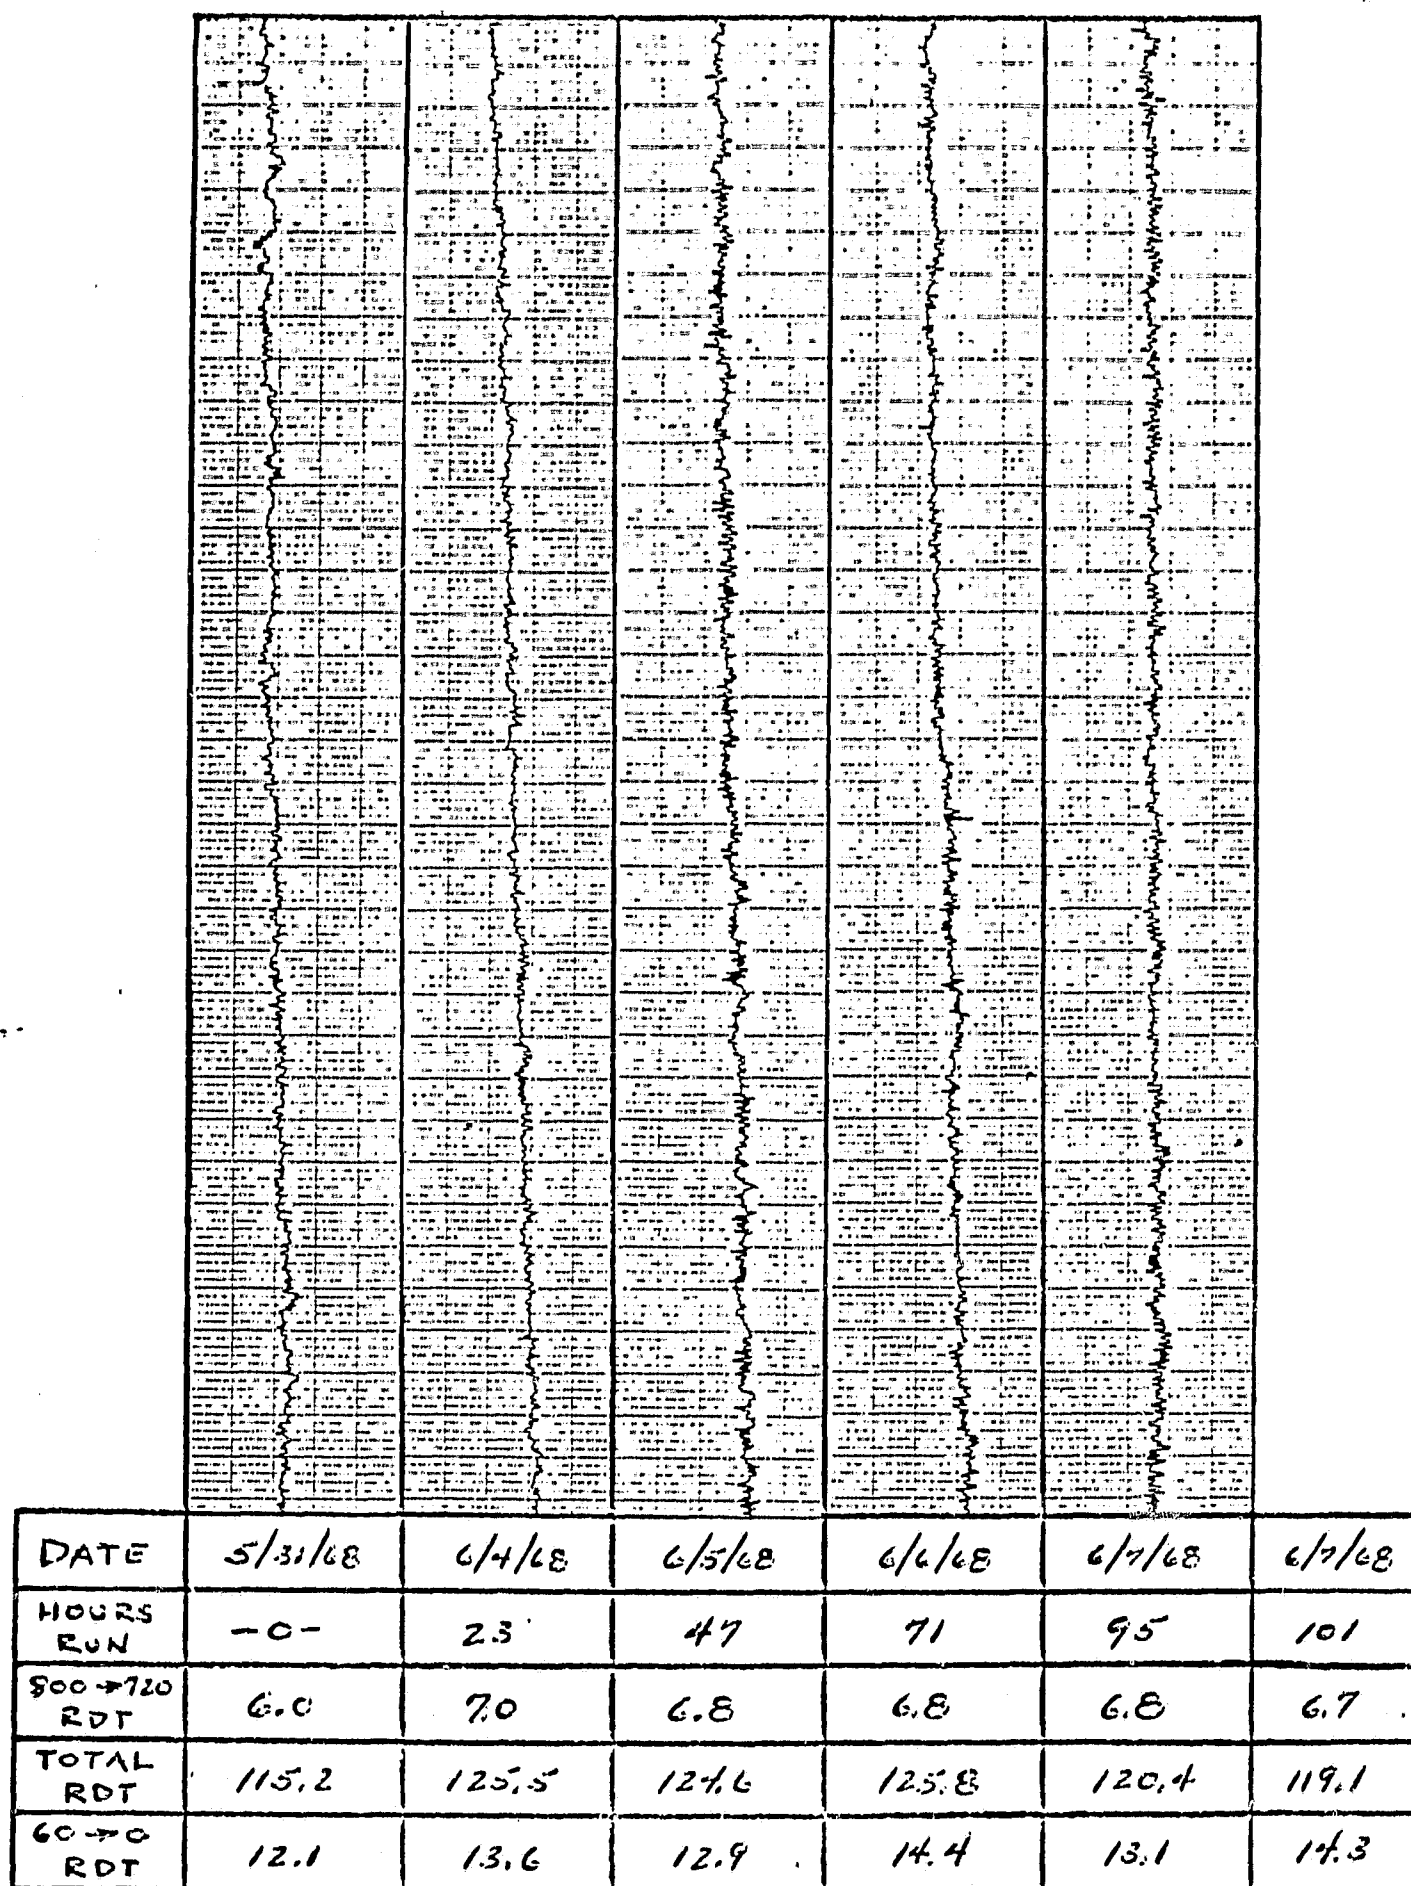 DATE 5/31/68 6/4/68 6/5/68 6/6/68 6/7/68 6/7/68
HOURS RUN -0- 23 47 71 95 101
800→720 RDT 6.0 7.0 6.8 6.8 6.8 6.7
TOTAL RDT 115.2 125.5 124.6 125.8 120.4 119.1
60→0 RDT 12.1 13.6 12.9 14.4 13.1 14.3